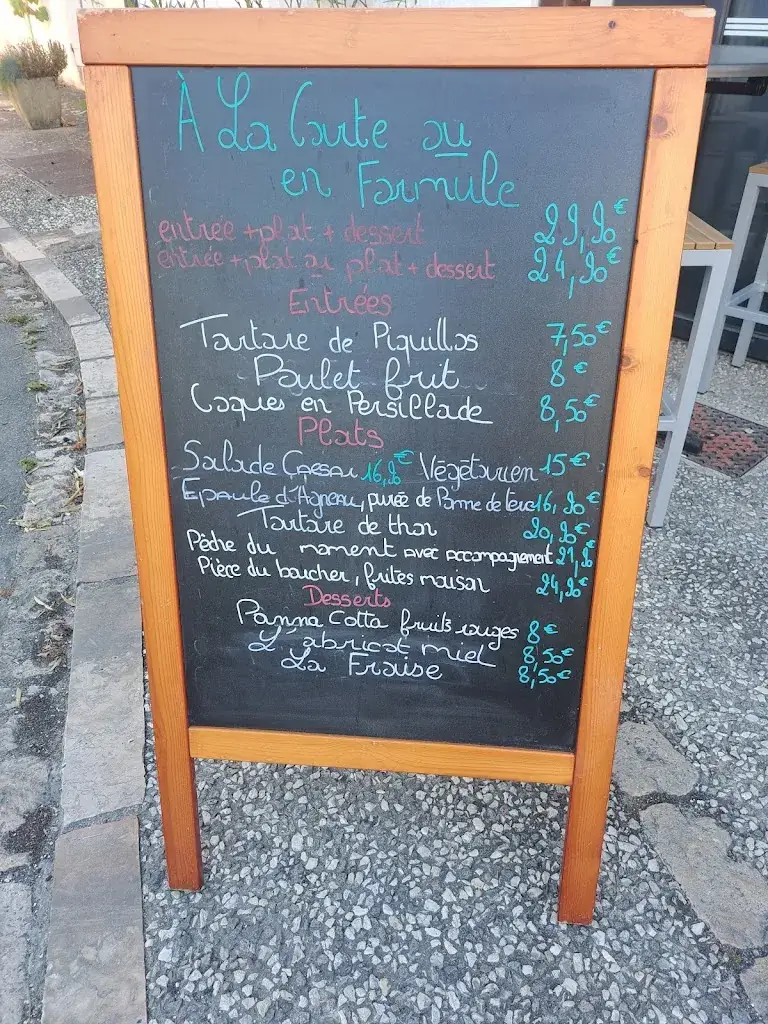 À La Carte ou
en Formule
entrée + plat + dessert 29,90€
entrée + plat ou plat + dessert 24,90€
Entrées
Tartare de Piquillos 7,50€
Poulet frit 8€
Coques en Persillade 8,50€
Plats
Salade Caesar 16,90€ Végétarien 15€
Epaule d'Agneau, purée de Pomme de terre 16,90€
Tartare de thon 20,90€
Pêche du moment avec accompagnement 21,90€
Pièce du boucher, frites maison 24,90€
Desserts
Panna Cotta fruits rouges 8€
L'abricot miel 8,50€
La Fraise 8,50€